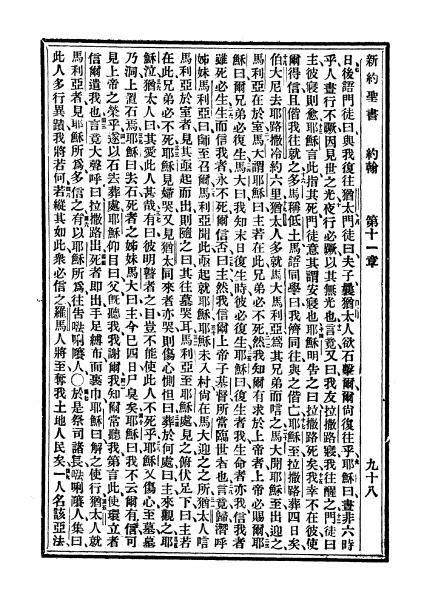 新約聖書 約翰 第十一章 九十八
日後語門徒曰與我復往猶太門徒曰夫子曩猶太人欲石擊爾爾尚復往乎耶穌曰晝非六時
乎人晝行不蹶因見世之光夜行必蹶以其無光也言竟又曰我友拉撒路寢我往醒之門徒曰
主彼寢則愈耶穌言此指其死門徒意其謂安寢也耶穌明告之曰拉撒路死矣我幸不在彼使
爾得信且偕我往就之多馬稱低土馬語同學曰我儕同往與之偕亡耶穌至拉撒路葬四日矣
伯大尼去耶路撒冷約六里猶太人多就馬大馬利亞爲其兄弟而唁之馬大聞耶穌至出迎之
馬利亞在於室馬大謂耶穌曰主若在此兄弟必不死然我知爾有求於上帝者上帝必賜爾耶
穌曰爾兄弟必復生馬大曰我知末日復生時彼必復生耶穌曰復生者我生命者亦我信我者
雖死必生生而信我者永不死爾信否曰主然我信爾上帝子基督所當臨世者也言竟歸潛呼
姊妹馬利亞曰師至召爾馬利亞聞此亟起就耶穌耶穌未入村尚在馬大迎之之所猶太人唁
馬利亞於室者見其亟起而出則隨之曰其往墓哭耳馬利亞至耶穌處見之俯伏足下曰主若
在此兄弟必不死耶穌見婦哭又見猶太同來者亦哭則傷心惻怛曰葬於何處曰主來觀之耶
穌泣猶太人曰其愛此人甚哉有曰彼明瞽者之目豈不能使此人不死乎耶穌又傷心至墓墓
乃洞上置石焉耶穌曰去石死者之姊妹馬大曰主今已四日尸臭矣耶穌曰我不云爾有信可
見上帝之榮乎遂以石去葬處耶穌仰目曰父旣聽我我謝爾我知爾常聽我第言此使環立者
信爾遣我也言竟大聲呼曰拉撒路出死者即出手足縛布而裹巾耶穌曰解之使行猶太人就
馬利亞者見耶穌所爲多信之有以耶穌所爲往告唎人〇於是祭司諸長唎人集曰
此人多行異蹟我將若何若縱其如此衆必信之羅馬人將至奪我土地人民矣一人名該亞法